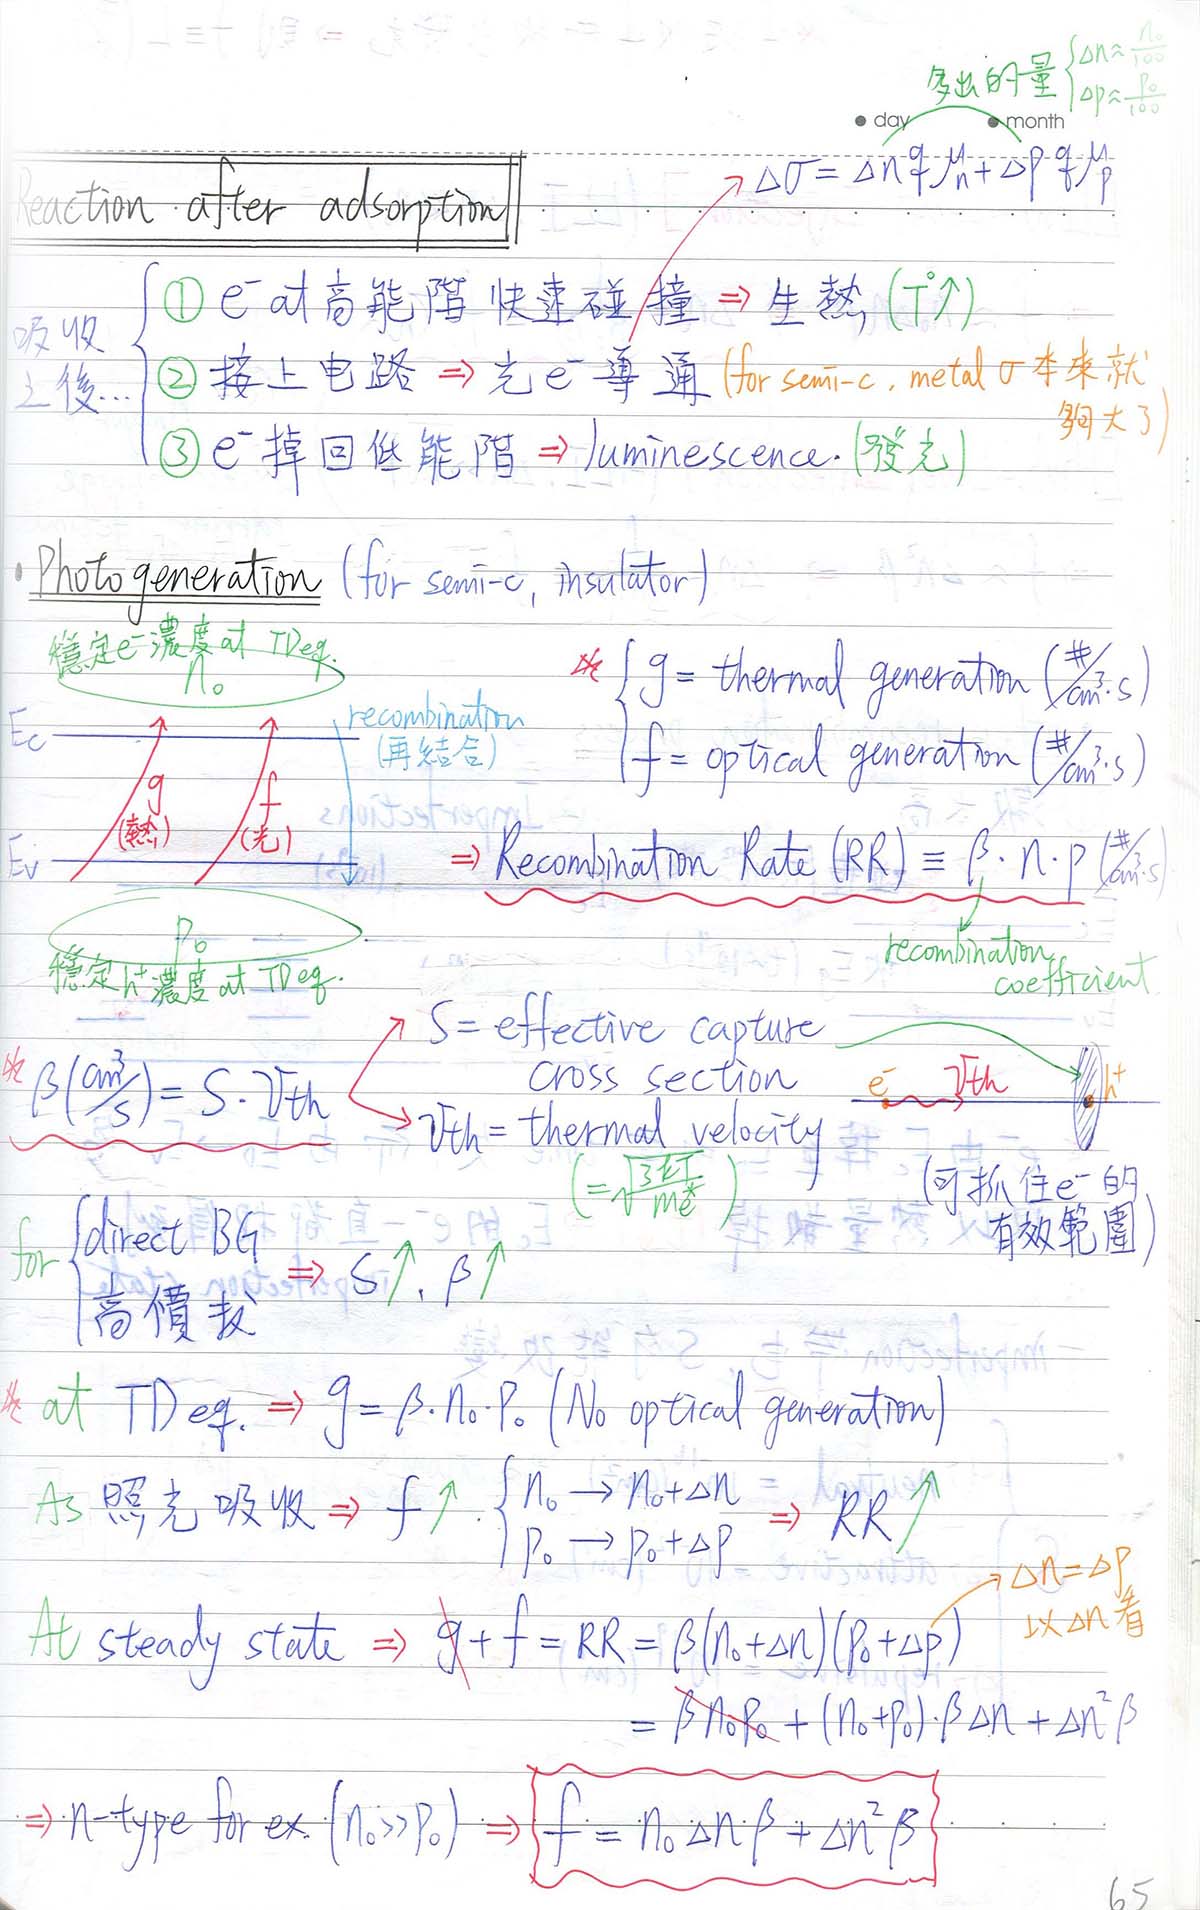 多出的量 { Δn ≈ n₀/100
Δp ≈ p₀/100
day month
Δσ = Δn q μn + Δp q μp
Reaction after adsorption
吸收之後…
① e⁻ at 高能階 快速碰撞 ⇒ 生熱 (T°↑)
② 接上电路 ⇒ 光e⁻導通 (for semi-c, metal σ本來就夠大了)
③ e⁻掉回低能階 ⇒ luminescence. (發光)
• Photo generation (for semi-c, insulator)
穩定e⁻濃度 at TD eq.
n₀
Ec
recombination
(再結合)
g
(熱)
f
(光)
Ev
p₀
穩定h⁺濃度 at TD eq.
g = thermal generation (#/cm³·s)
f = optical generation (#/cm³·s)
⇒ Recombination Rate (RR) ≡ β·n·p (#/cm³·s)
recombination coefficient
β (cm³/s) = S·Vth
S = effective capture cross section
Vth = thermal velocity
(= √(3kT/me*))
e⁻ Vth h⁺
(可抓住e⁻的有效範圍)
for { direct BG
高價數 ⇒ S↑, β↑
at TD eq. ⇒ g = β·n₀·p₀ (No optical generation)
As 照光吸收 ⇒ f↑ { n₀ → n₀+Δn
p₀ → p₀+Δp ⇒ RR↑
At steady state ⇒ g + f = RR = β(n₀+Δn)(p₀+Δp)
Δn = Δp
以Δn看
= βn₀p₀ + (n₀+p₀)·βΔn + Δn²β
⇒ n-type for ex. (n₀>>p₀) ⇒ f = n₀Δnβ + Δn²β
65